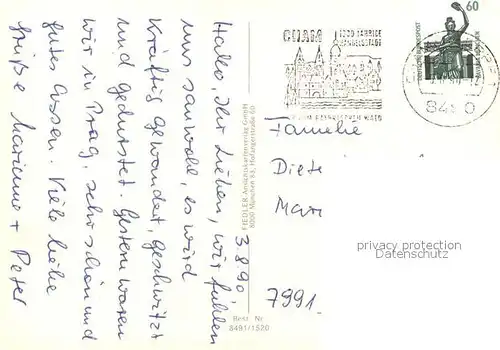 3.8.90.
Hallo, Ihr Lieben, wir fühlen
uns sauwohl, es wird
kräftig gewandert, geschwitzt
und gedurstet. Gestern waren
wir in Prag, sehr schön und
gutes Essen. Viele liebe
Grüße Marianne + Peter
FIEDLER-Ansichtskartenverlag GmbH
8000 München 83, Hofangerstraße 60
Best. Nr.
8491/1520
CHAM
1200 JÄHRIGE
60
Familie
Diete
Mar
7991
privacy protection
Datenschutz